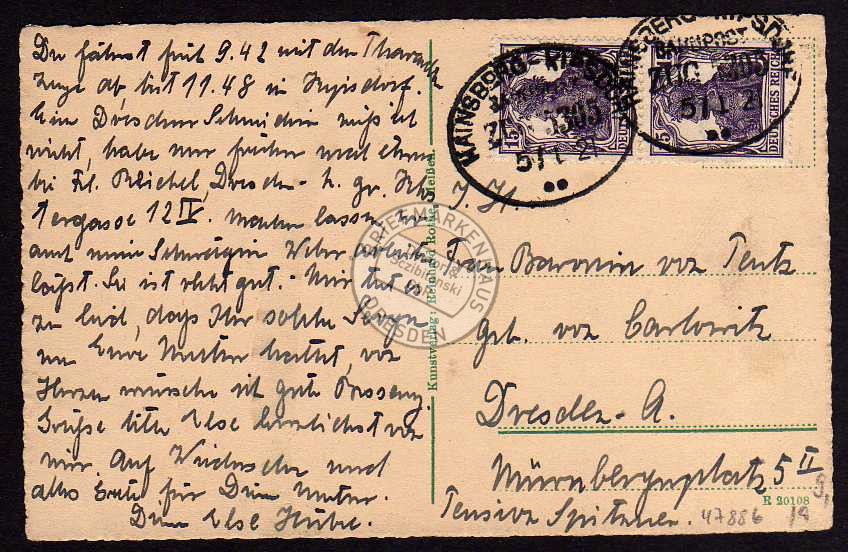 Du fährst früh 9.42 mit dem Tharandt
Zuge ab, bist 11.48 in Kipsdorf.
Eine Dresdner Schneiderin weiß ich
nicht, habe nur früher mal etwas
bei Frl. Reichel, Dresden-A. gr.
tergasse 12 IV. machen lassen, wo
auch meine Schwägerin Weber arbeiten
läßt. Sie ist recht gut. - Mir tut es
zu leid, daß Ihr solche Sorgen
um Eure Mutter hattet, von
Herzen wünsche ich gute Besserung.
Grüße bitte Else herzlichst von
mir. Auf Wiedersehen und
alles Gute für Deine Mutter.
Deine Else Hübel.
Kunstverlag: Reinhard Rothe, Meißen
HAINSBERG - KIPSDORF
BAHNPOST
ZUG 5305
5/1 21
HAINSBERG - KIPSDORF
BAHNPOST
ZUG 5305
5/1 21
15
DEUTSCHES REICH
15
DEUTSCHES REICH
I. H.
Frau Baronin von Teutz
geb. von Carlowitz
Dresden-A.
Nürnbergerplatz 5 II
Pension Spitzner.
R 20108
47886
BRIEFMARKENHAUS
DRESDEN